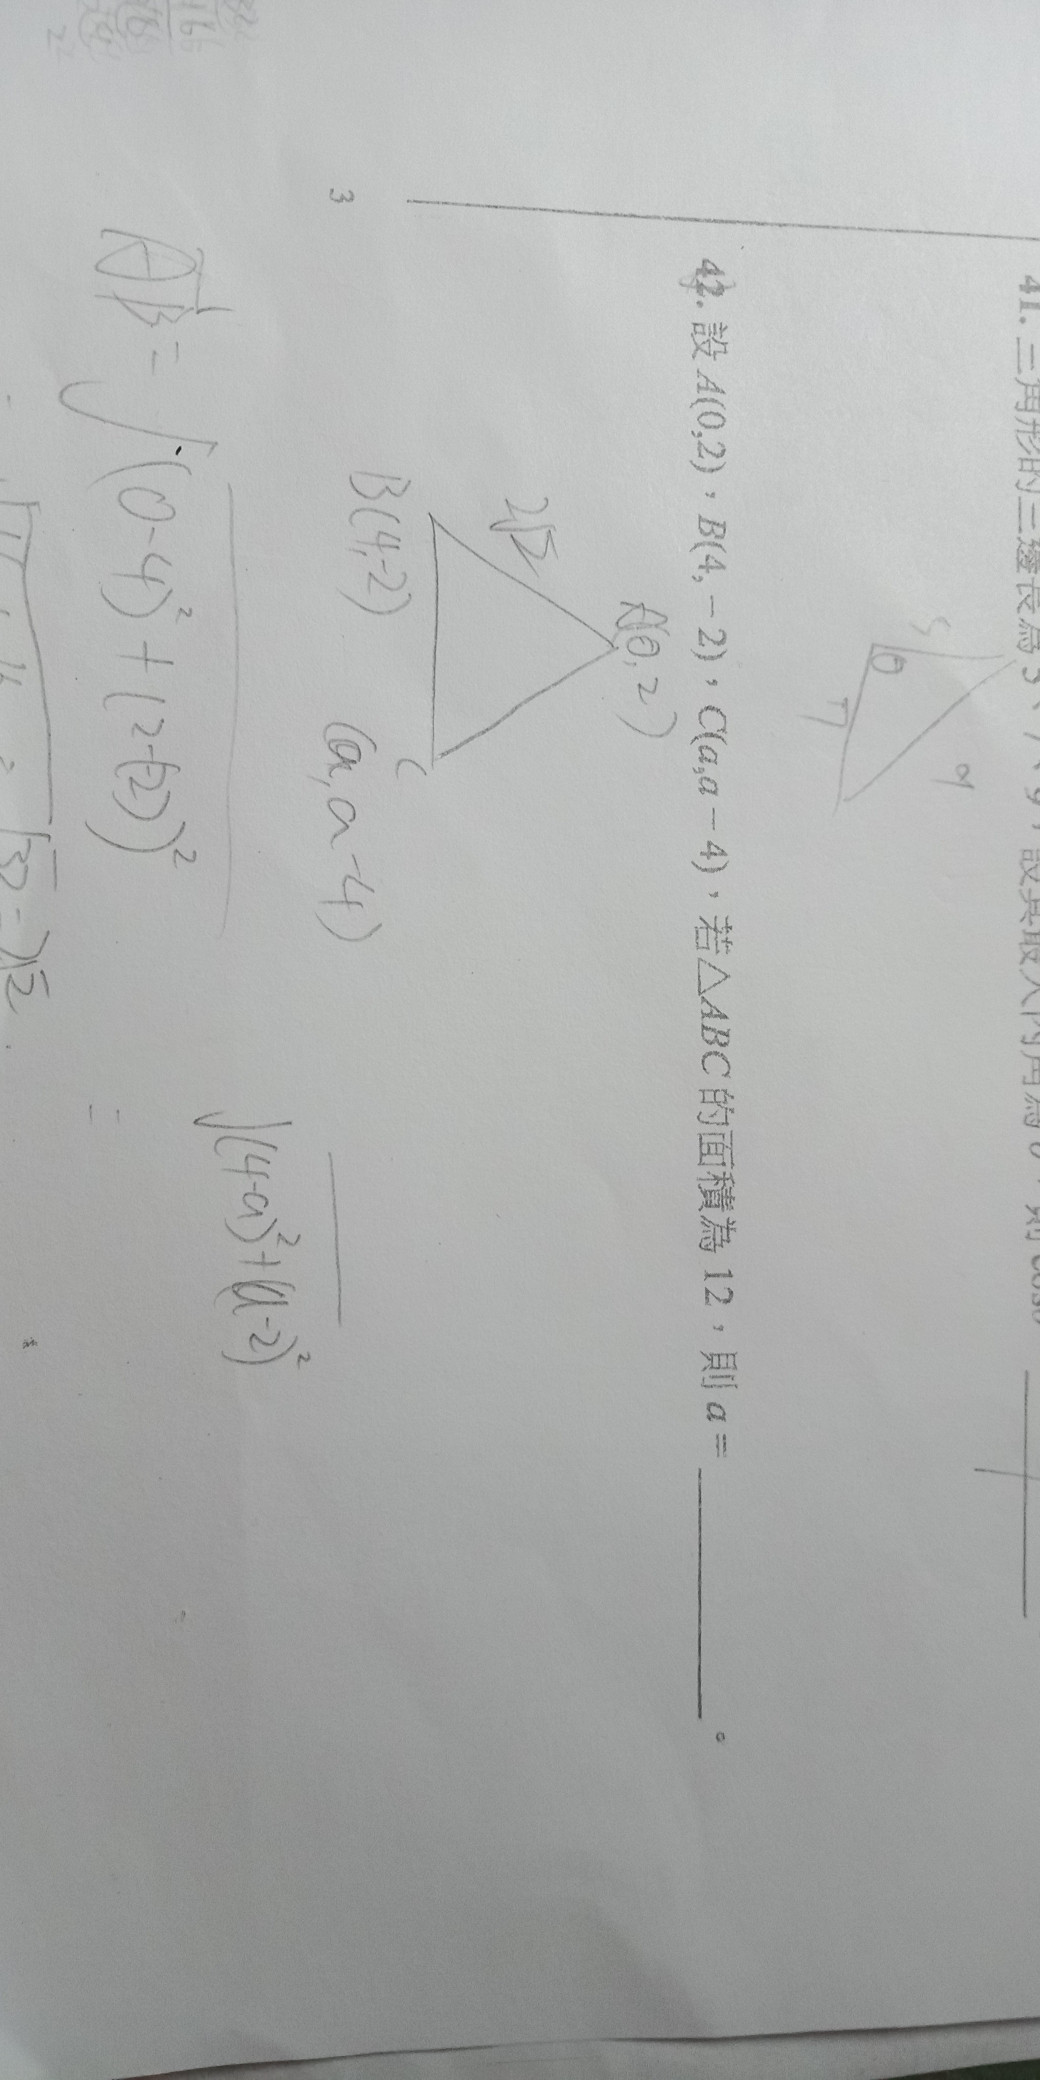 41. 三角形的三邊長為 5、7、9，設其最大內角為 θ，則 cosθ
5
θ
7
9
42. 設 A(0,2)，B(4,－2)，C(a,a－4)，若△ABC 的面積為 12，則 a＝ 。
A(0,2)
2√2
B(4,-2)
C
(a,a-4)
3
√(4-a)²+(a-2)²
AB=√(0-4)²+(2-(-2))²
=
=√32=2√2